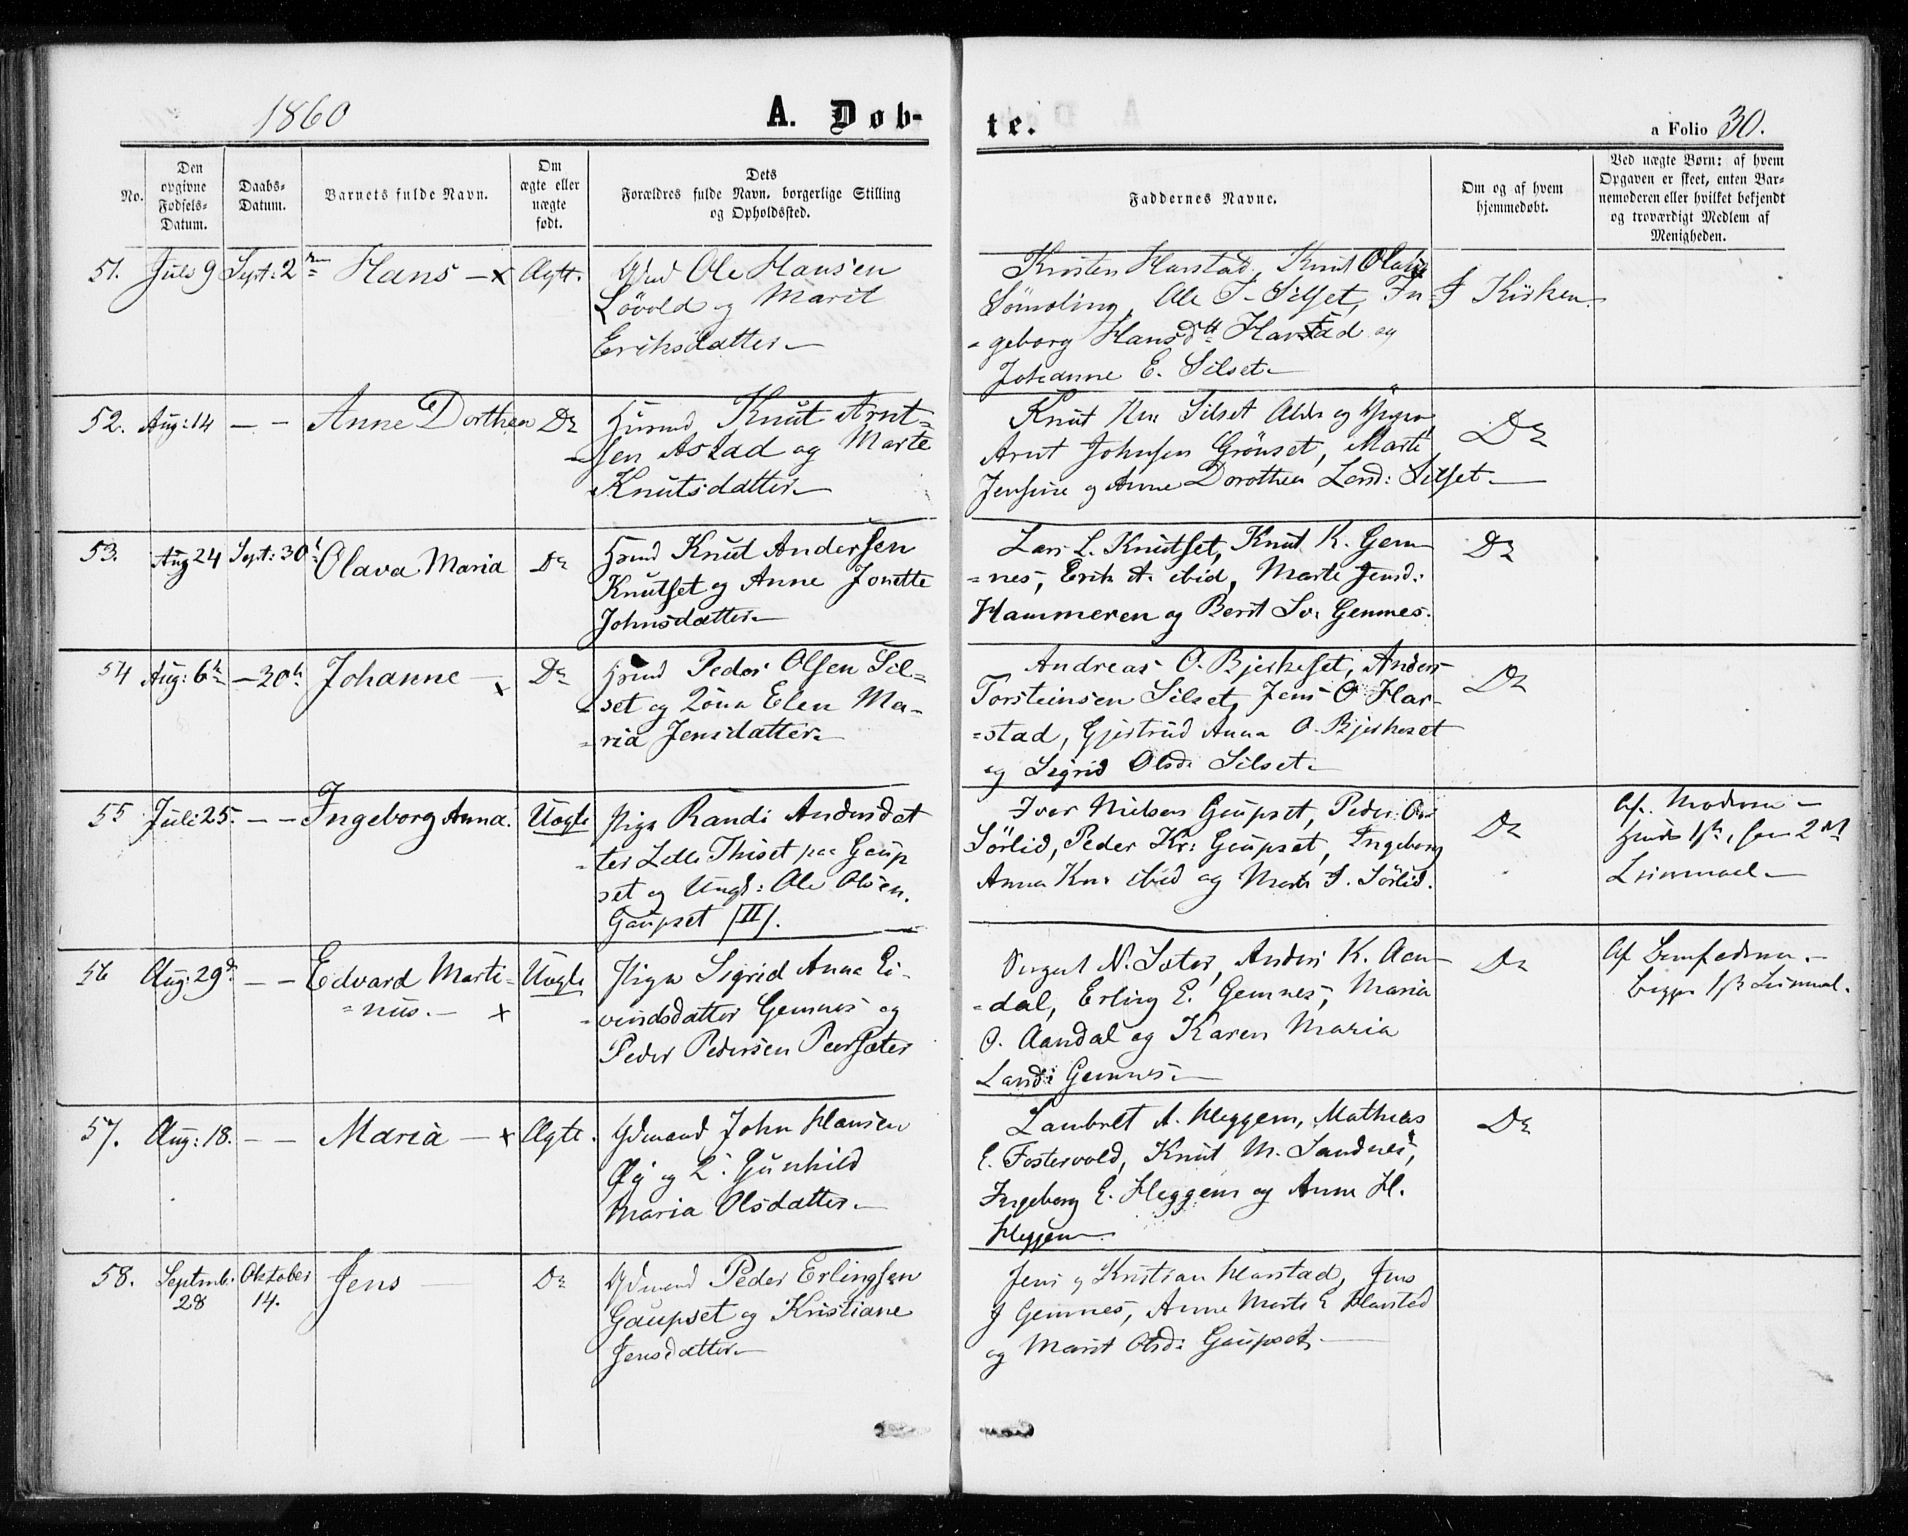 1860
A. Døb-
te.
a Folio 30.
No.
Den
opgivne
Fødsels-
Datum.
Daabs-
Datum.
Barnets fulde Navn.
Om
ægte eller
uægte
født.
Dets
Forældres fulde Navn, borgerlige Stilling
og Opholdssted.
Faddernes Navne.
Om og af hvem
hjemmedøbt.
Ved uægte Børn: af hvem
Opgaven er skeet, enten Bar-
nemoderen eller hvilket bekjendt
og troværdigt Medlem af
Menigheden.
51. Juli 9 Sept: 2 Hans – x Ægte.
Ole Hansen
Løvold og Marit
Eriksdatter
Kristen Harstad, Knut
Sømoling, Ole T. Silset, In-
geborg Hansd. Harstad og
Johanne E. Silset
I Kirken.
52. Aug: 14 – – Anne Dorthea Do
Husmd Knut Arnt-
sen Astad og Marte
Knutsdatter
Knut Silset og
Arnt Johnsen Grönset, Marte
Jensine og Anne Dorothea Silset
Do
53. Aug 24 Sept: 30 Olava Maria Do
Knut Andersen
Knutset og Anne Jonette
Johnsdatter
Lars L. Knutset, Knut K. Gem-
=nes, Erik A. ibid, Marte Jensd:
Hammeren og Berit Gemnes.
Do
54 Aug: 6te –30te Johanne – x Do
Peder Olsen Sil-
set og Kona Elen Ma-
=ria Jensdatter
Andreas O. Bjerkeset, Anders
Torsteinsen Silset, Jens O Har-
=stad, Gjertrud Anna O. Bjerkeset
og Sigrid Olsd: Silset
Do
55 Juli 25. – – Ingeborg Anna. Uægte
Piga Randi Andersdat
=ter Thiset paa Gaup
set og Ungk: Ole Olsen
Gaupset /II/.
Iver Nielsen Gaupset, Peder
Sörlid, Peder Kr: Gaupset, Ingeborg
Anna Kn: ibid og Marte I. Sörlid.
Do
Af Moderen –
Hendes 1ste, 2det
Leiermaal
56 Aug: 29de – – Edvard Marti-
=nus. – x Uægte
Piga Sigrid Anna Ei-
vindsdatter Gemnes og
Peder Pedersen Peersæter
N. Sæter, Anders K. Aan-
=dal, Erling E. Gemnes, Maria
O. Aandal og Karen Maria
Gemnes
Do
Af Barnfaderen –
Begges 1ste Leiermaal.
57. Aug: 18. – – Maria – x Ægte.
Gdmand John Hansen
Øi og K. Gunhild
Maria Olsdatter
Lambret A. Heggem, Mathias
E. Fostervold, Knut M. Sandnes,
Ingeborg E. Heggem og Anne H.
Heggem
Do
58. Septmb. 28 Oktober 14. Jens Do
Gdmand Peder Erlingsen
Gaupset og Kristiane
Jensdatter
Jens og Kristian Harstad, Jens
J Gemnes, Anne Marte E Harstad
og Marit Olsd: Gaupset